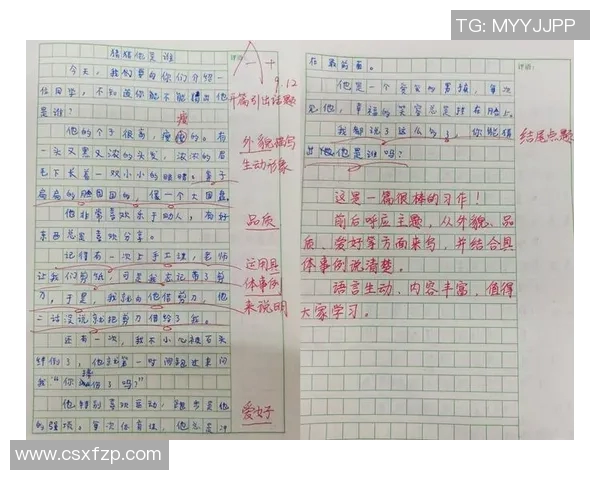 TG: MYYJJPP
猜猜他是谁
评语:
A+
9.12
今天，我们要向你们介绍一
位同学，不知道你能不能猜出他
是谁？
开篇引出话题
瘦
他的个子很高，瘦瘦的。有
一头又黑又浓的头发，浓浓的眉
毛下长着一双小小的眼睛。鼻子
扁扁的脸圆圆的，像一个大圆盘。
外貌描写
生动形象
他非常喜欢乐于助人，有好
东西总是喜欢分享。
品质
记得有一次上手工课，老师
让我们剪纸，可是我忘记带了剪
刀，于是，我就向他借剪刀，他
二话没说就把剪刀借给了我。
运用具
体事例
来说明
还有一次，我不小心被石头
绊倒了，他就第一时间跑过来问
我“你摔伤了吗？”
他特别喜欢运动，跑步是他
的强项。每次体育课，他总是冲
爱好
在最前面。
评语:
他是一个爱笑的男孩，每次
见他，幸福的笑容总是挂在脸上。
我都说了这么多，你能猜
出他是谁吗？
结尾点题
这是一篇很棒的习作！
前后呼应主题，从外貌、品
质、爱好等方面来写，并结合具
体事例说清楚。
语言生动、内容丰富，值得
大家学习。
www.csxfzp.com